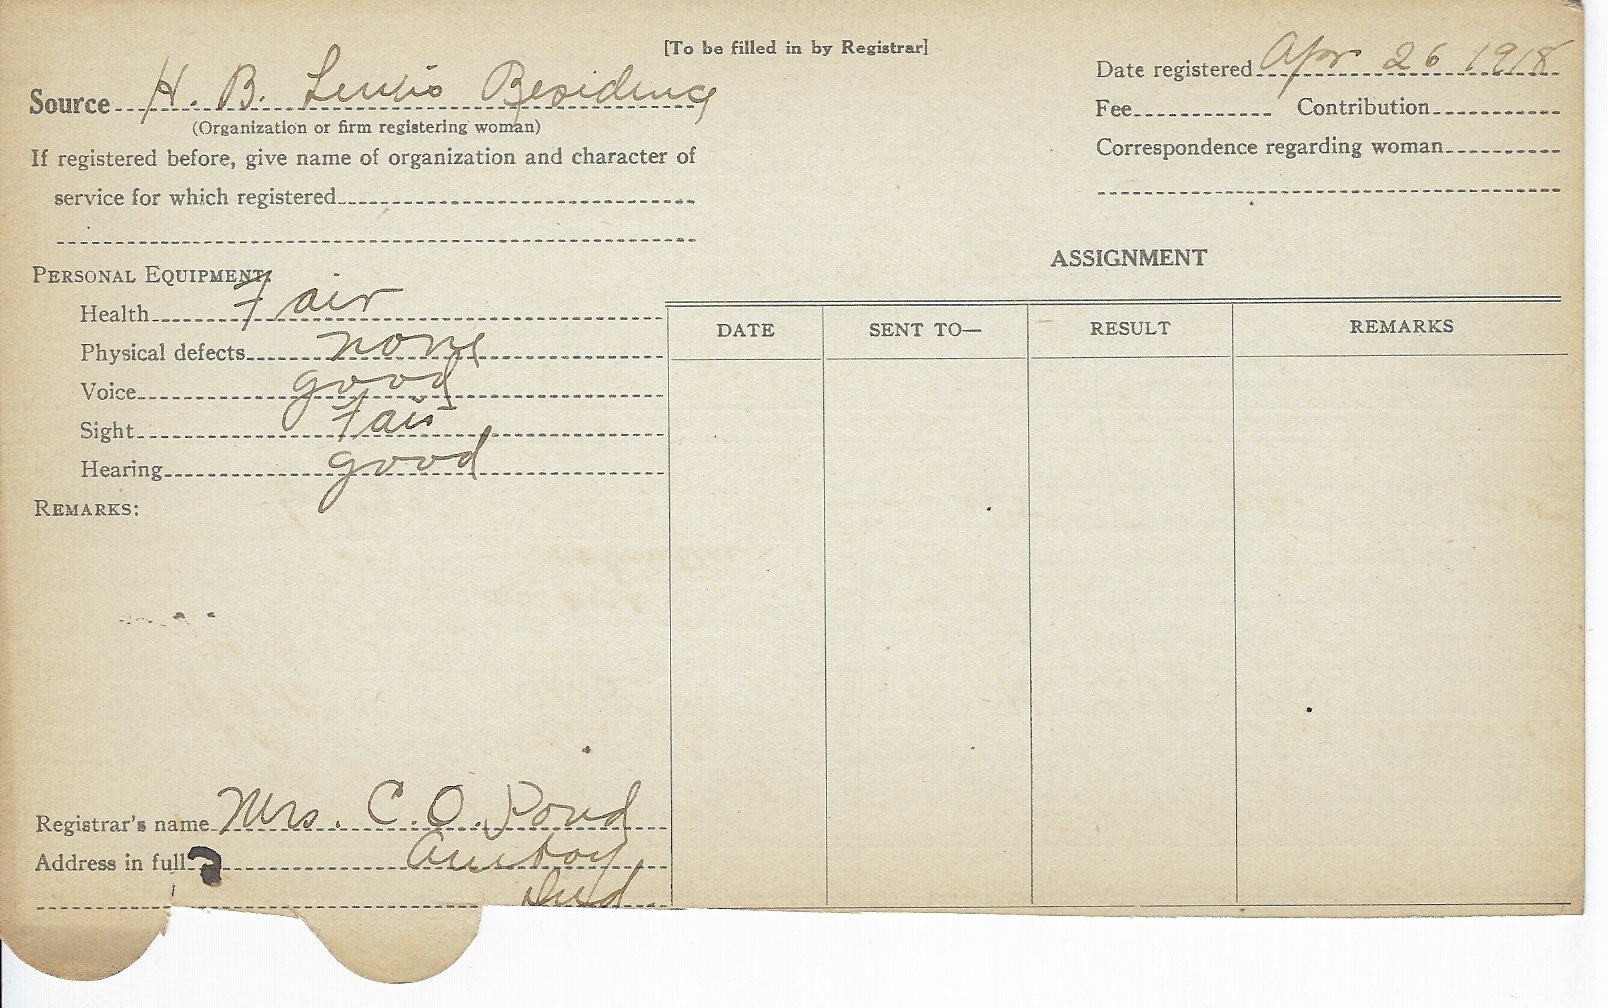 [To be filled in by Registrar]
Source H. B. Lewis Residence
(Organization or firm registering woman)
If registered before, give name of organization and character of
service for which registered
Date registered Apr 26 1918
Fee Contribution
Correspondence regarding woman
PERSONAL EQUIPMENT:
Health Fair
Physical defects none
Voice good
Sight Fair
Hearing good
REMARKS:
ASSIGNMENT
DATE SENT TO— RESULT REMARKS
Registrar's name Mrs. C. O. Pond
Address in full Amboy
Ind